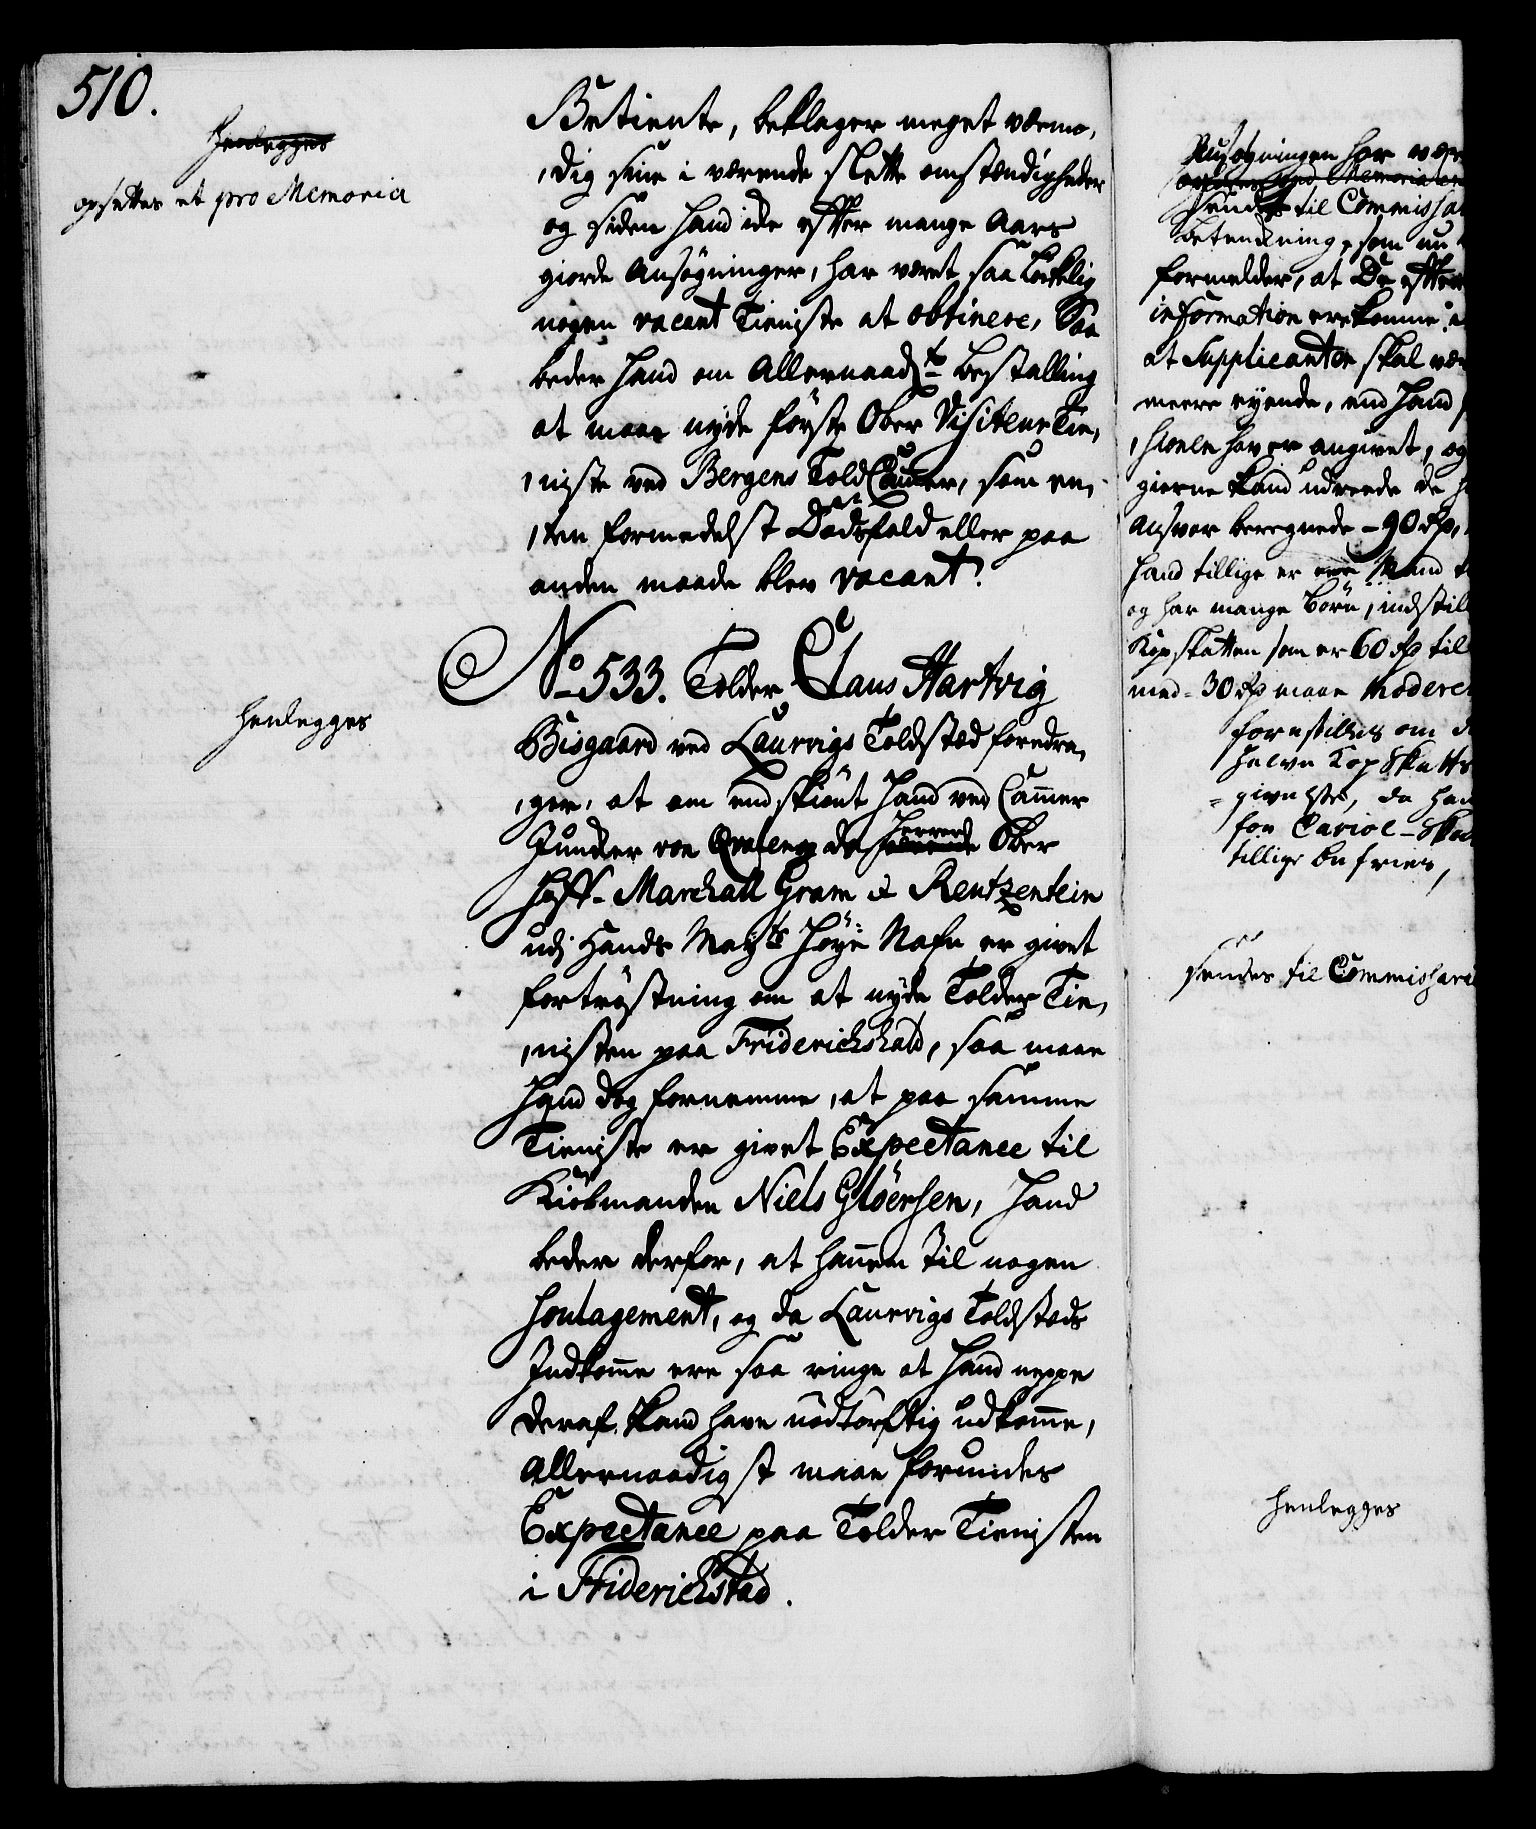 510.
henlegges
opsettes et pro Memoria
Betiente, beklager meget veemo,
,dig sine i værende slette omstændigheder
og siden hand ide efter mange Aars
giorde Ansøgninger, har været saa lökelig
nogen vacant Tieniste at obtinere, Saa
beder hand om Allernaadste bestalling
at maae nyde förste Ober Visiteur Tie,
,niste ved Bergens Told Cammer, som en,
,ten formedelst Dödsfald eller paa
anden maade blev vacant.
No 533. Tolder Claus Hartvig
henlegges
Bisgaard ved Laurvigs Toldsted foredra,
,ger, at om endskiönt hand ved Cammer
Juncker von Qvalen og da Herren Ober
Hoff-Marchall Gram & Rentzentein
udj Hands Mayts Höye Nafn er givet
fortröstning om at nyde Tolder Tie,
,nisten paa Friderichshald, saa maae
hand dog fornemme, at paa samme
Tieniste er givet Expectance til
Kiöbmanden Niels Glöersen, hand
beder derfor, at hannem til nogen
Soulagement, og da Laurvigs Toldsteds
Indkomme ere saa ringe at hand neppe
deraf kand have nödtörftig udkomme,
Allernaadigst maae forundes
Expectance paa Tolder Tienisten
i Friderichstad.
Ansøgningen har vær
sendes til Commissar
betenkning, som nu
formelder, at De efter
information er bekomme
at Supplicanten skal vær
meere eyende, end hand
hafver angivet, og
gierne kand udreede de
Ansvar beregnede - 90 rdr,
hand tillige er en Mand
og har mange börn, indstil
Kopskatten som er 60 rdr til
med - 30 rdr maae Moderer
forestilles om d
halve Kop Skatts
givelse, da han
for Cariol-Ska
tillige befries,
sendes til Commissari
henlegges